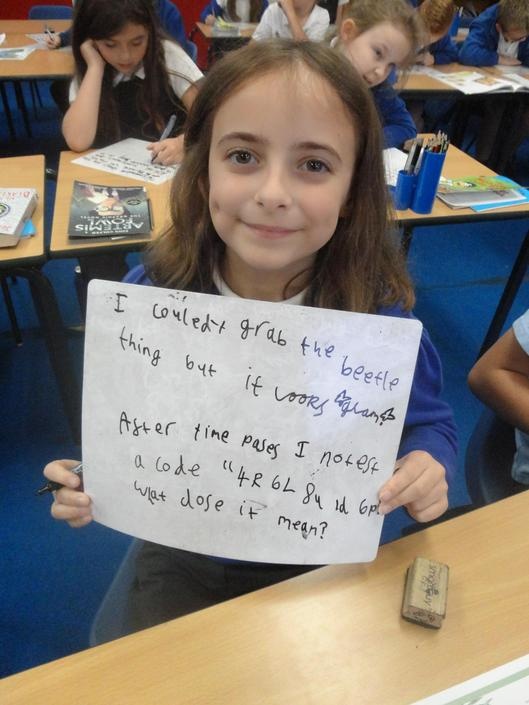 I couledt grab the beetle
thing but it looks glam
After time pases I notest
a code "4R 6L 8u 1d 6p
what dose it mean?
ARTEMIS
FOWL